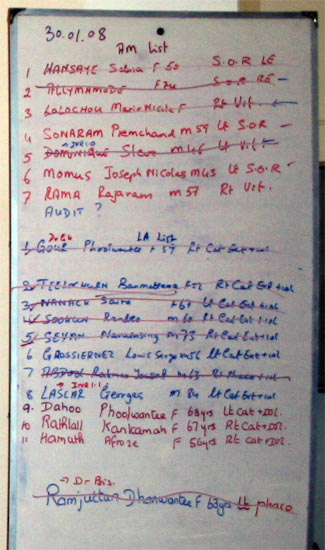 30.01.08
AM List
1 HANSAYE Sabia F 50 S.O.R LE
2 ALLYMAMODE F 74 S.O.R RE -
3 LOLOCHOU Marie Nicole F Rt Vit.
4 SONARAM Premchand M 59 Lt S.O.R -
5 DOMINIQUE Steve M 46 Lt Vit.
6 MOMUS Joseph Nicolas M 43 Lt S.O.R -
7 RAMA Rajaram M 57 Rt Vit.
AUDIT ?
LA List
1 GOUR Phoolwantee F 57 Rt Cat Ext + iol
2 TEELUCKURN F 52 Rt Cat Ext + iol
3 NANACK Saira F 67 Lt Cat Ext + iol
4 SOOKUN M 60 Rt Cat Ext + iol
5 SEYAN M 73 Rt Cat Ext + iol
6 GROSSIERNEZ Louis Serge M 56 Lt Cat Ext + iol
7 ABDOOL M 63 Rt Phaco + iol
8 LASCAR Georges M 84 Lt Cat Ext + iol
9. Dahoo Phoolwantee F 68yrs Lt Cat + IOL.
10 Rathlall Kankamah F 67yrs Rt Cat + IOL.
11 Hamuth Afroze F 56yrs Rt Cat + IOL.
→ Dr Bis.
Ramjuttun Dhanwantee F 63yrs Lt phaco